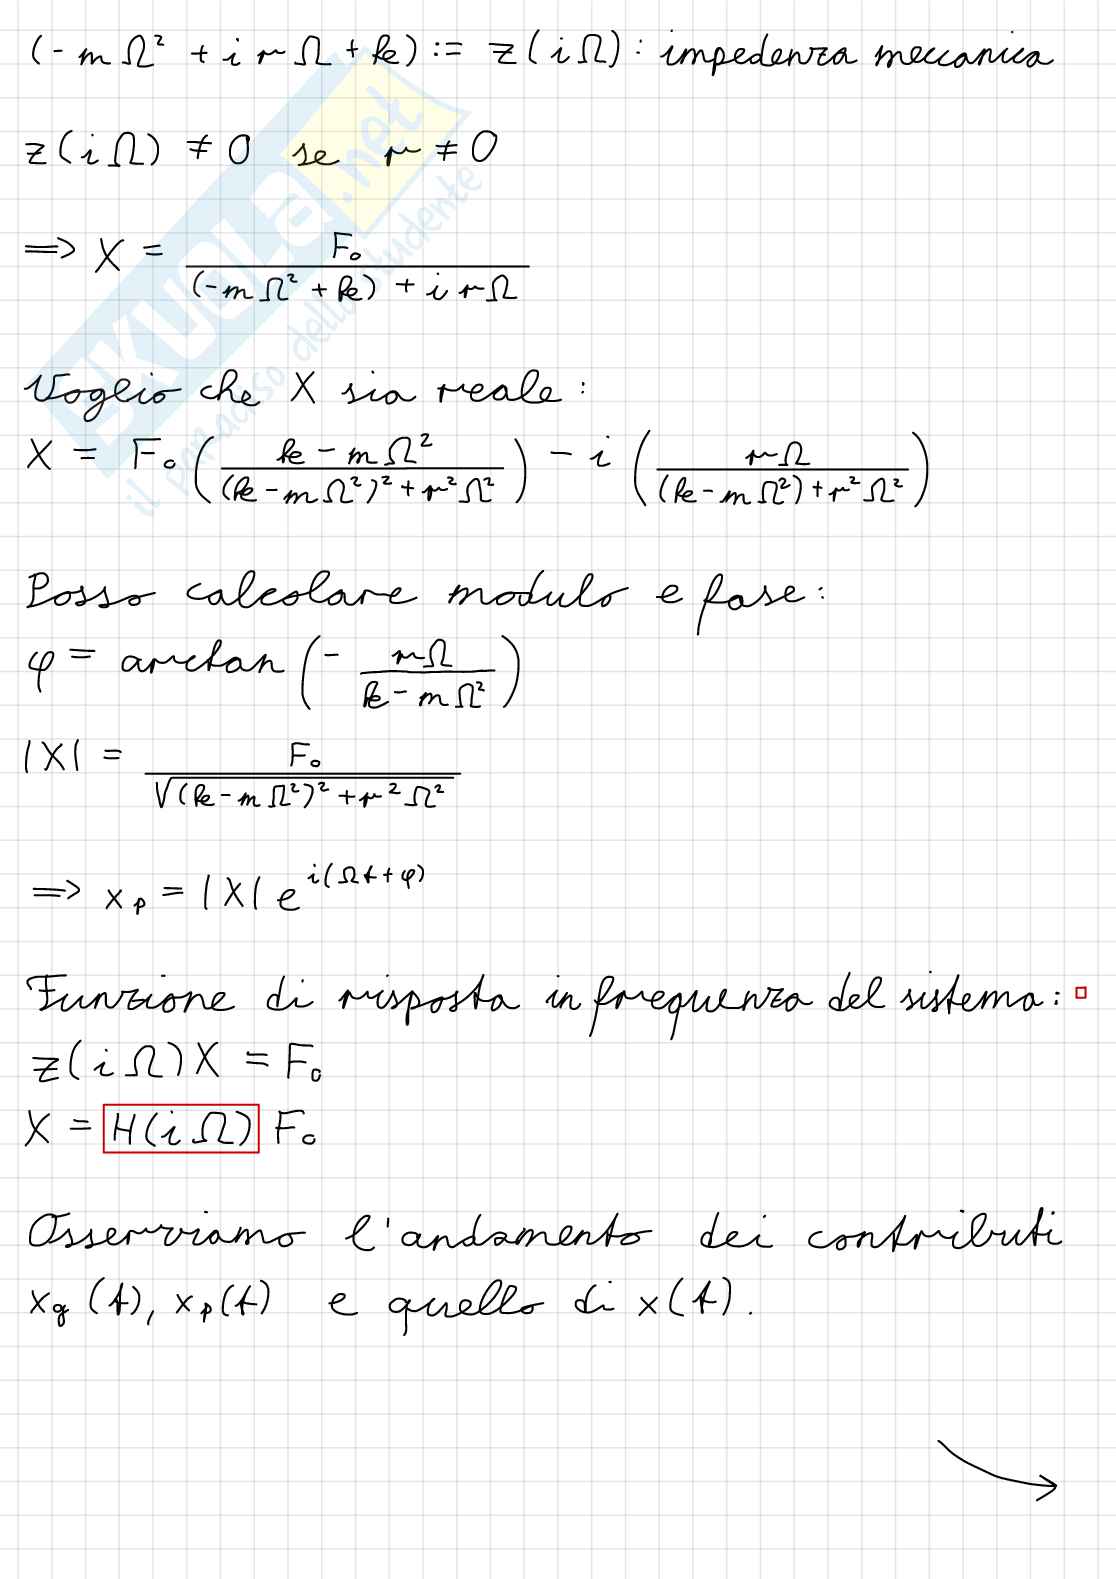 (-mΩ² + i r Ω + k) := z(iΩ): impedenza meccanica
z(iΩ) ≠ 0 se r ≠ 0
⟹ X = F₀ / ((-mΩ² + k) + i r Ω)
Voglio che X sia reale:
X = F₀ ((k - mΩ²) / ((k - mΩ²)² + r²Ω²)) - i (rΩ / ((k - mΩ²) + r²Ω²))
Posso calcolare modulo e fase:
φ = arctan (- rΩ / (k - mΩ²))
|X| = F₀ / √((k - mΩ²)² + r²Ω²)
⟹ xₚ = |X| e^{i(Ωt + φ)}
Funzione di risposta in frequenza del sistema:
z(iΩ)X = F₀
X = H(iΩ) F₀
Osserviamo l'andamento dei contributi
x_g(t), xₚ(t) e quello di x(t).
SKUOLA.net
il paradiso dello studente